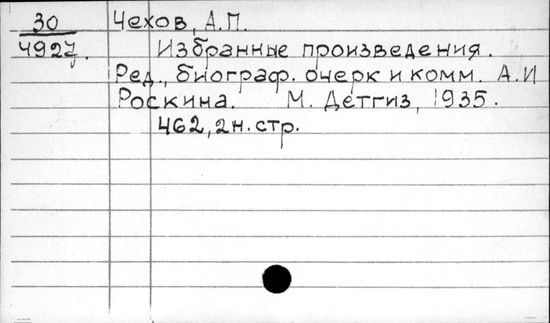 30 Чехов, А.П.
4927. Избранные произведения.
Ред., биограф. очерк и комм. А.И
Роскина. М. Детгиз, 1935.
462, 2н.стр.